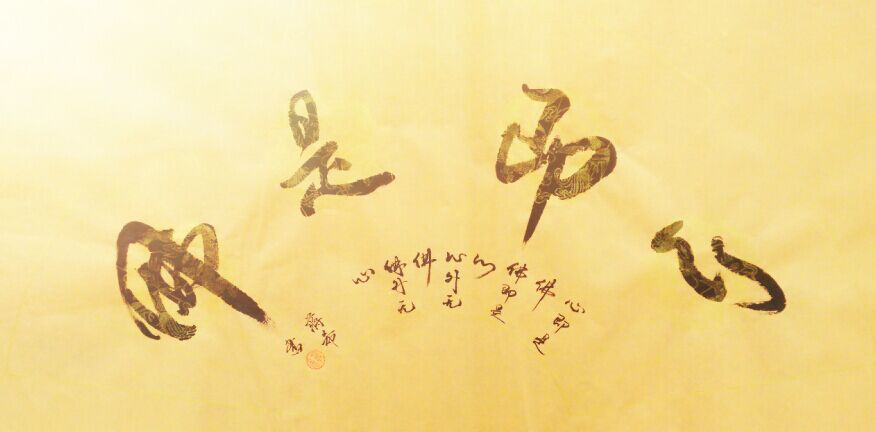 心即是佛
心即是
佛
佛即是
心
心外无
佛
佛外无
心